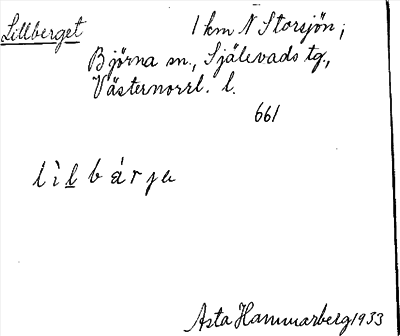 Lillberget 1 km N Storsjön;
Björna sn., Själevads tg.,
Västernorrl. l.
661
lìlbárja
Asta Hammarberg 1933